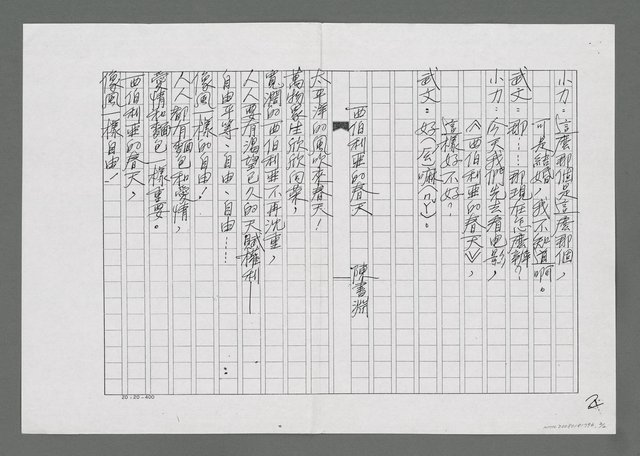 小力：這麼那個是這麼那個，
可是結婚，我不知道啊。
武文：那……那現在怎麼辦？
小力：今天我們先去看电影，
《西伯利亜的春天》，
這樣好不好？
武文：好（ㄏㄠˇ）嘛（ㄇㄚ）。
西伯利亜的春天
陳書淵
太平洋的風吹來春天！
萬物眾生欣欣向榮，
寬濶的西伯利亜不再沈重，
人人要有渴望已久的天賦權利——
自由平等、自由、自由……
像風一樣的自由！
人人都有麵包和愛情，
愛情和麵包一樣重要。
西伯利亜的春天，
像風一樣自由！
20×20=400